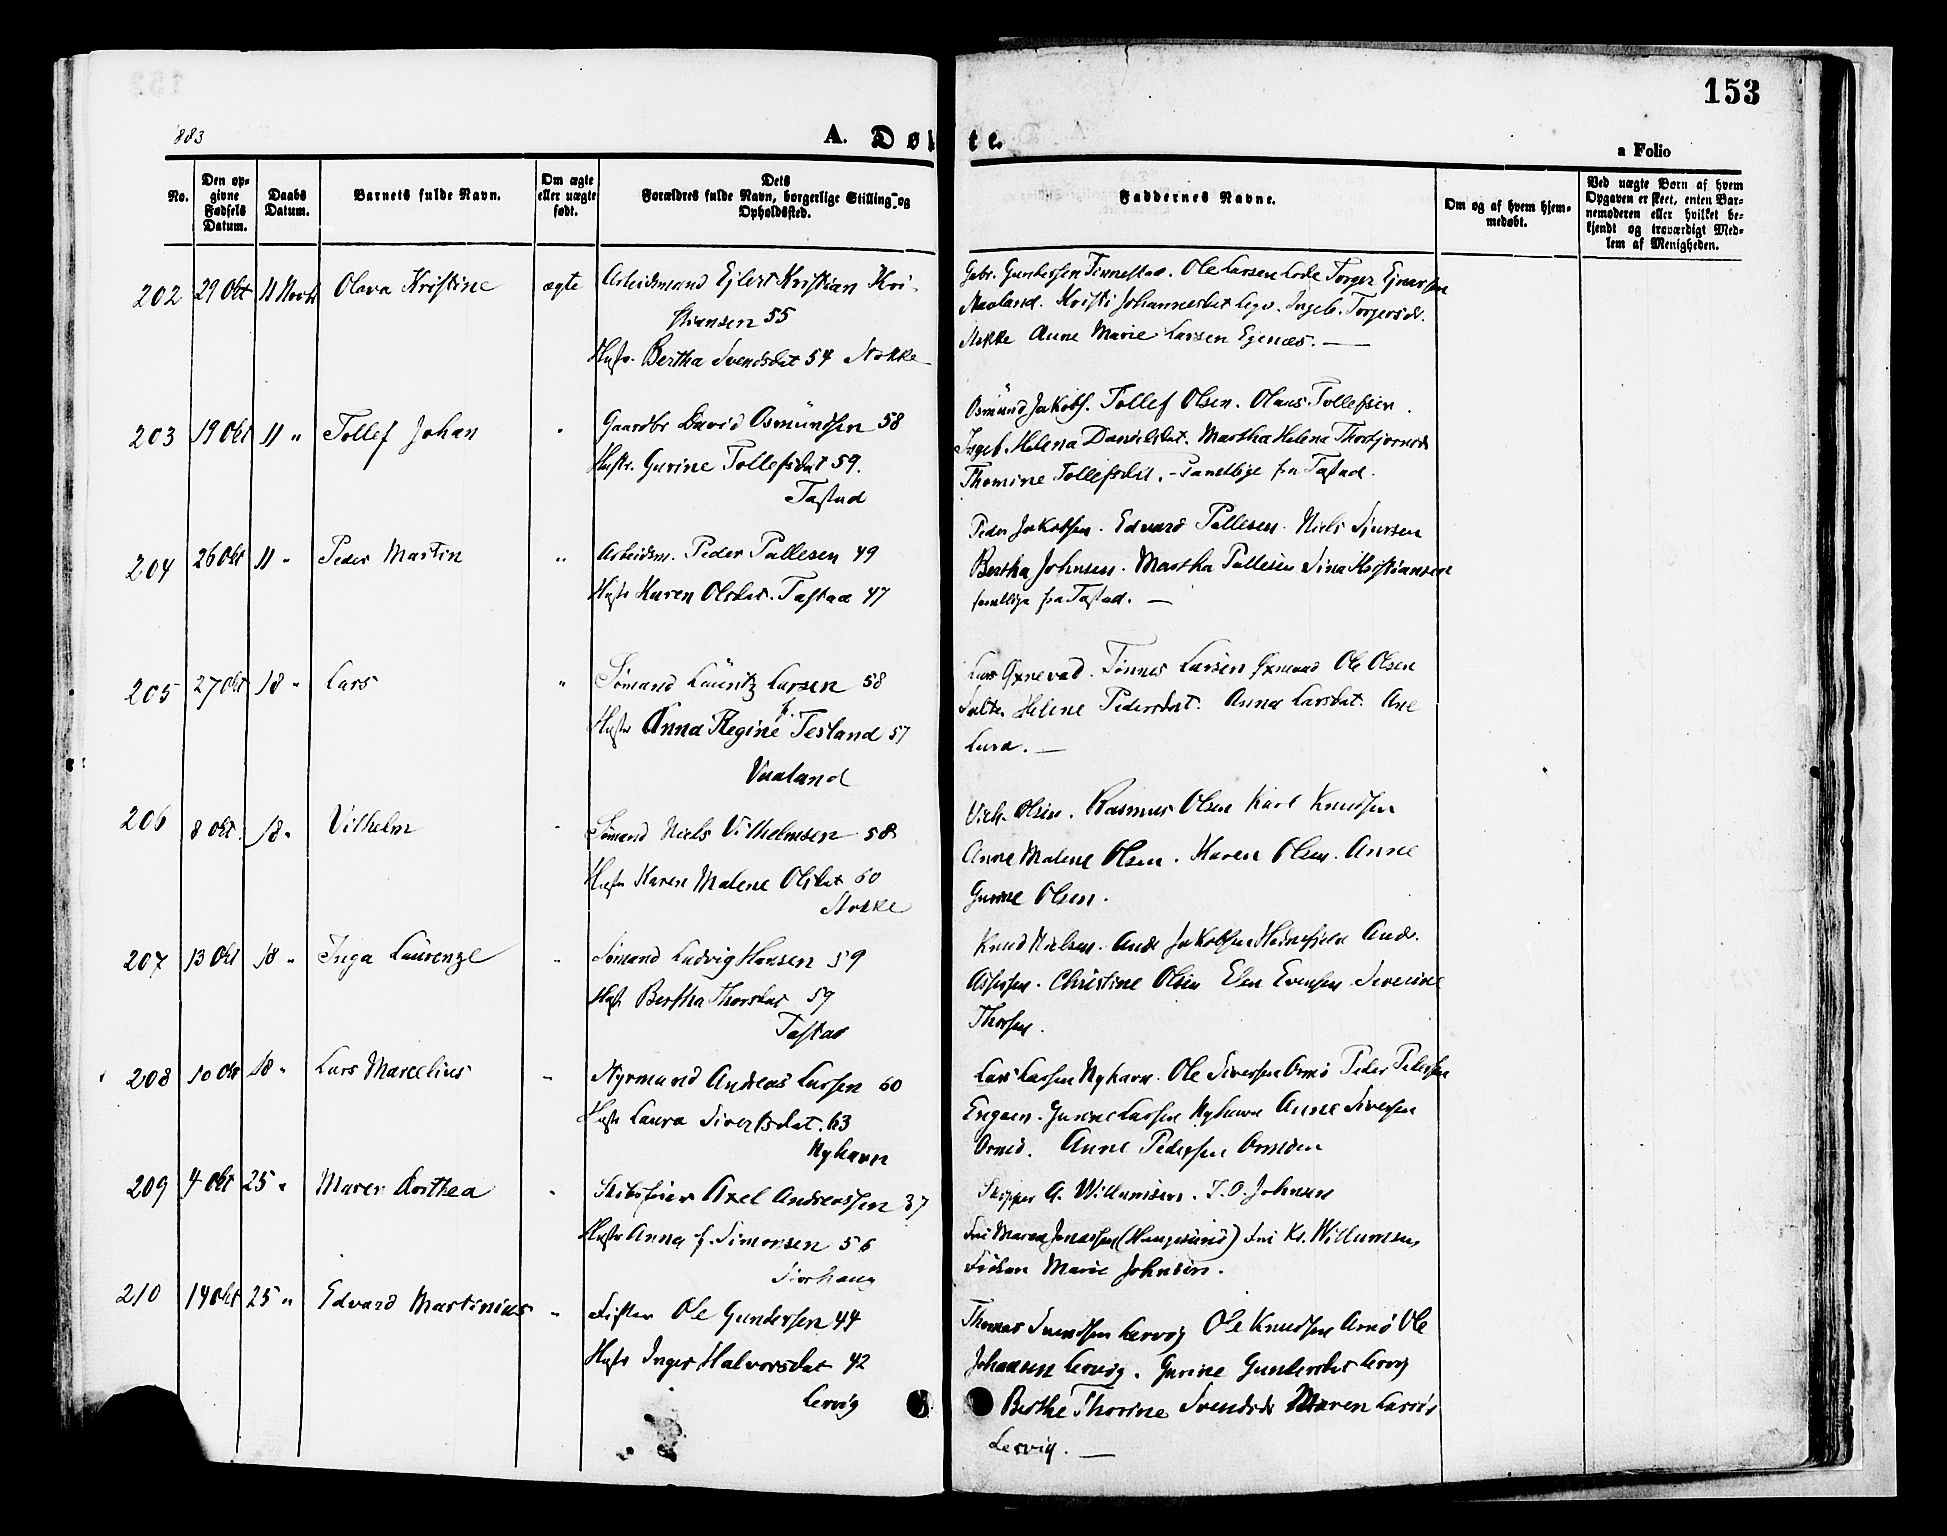 153
883
A. Døbte.
a Folio
No.
Den opgivne Fødsels Datum.
Daabs Datum.
Barnets fulde Navn.
Om ægte eller uægte født.
Dets Forældres fulde Navn, borgerlige Stilling og Opholdsted.
Faddernes Navne.
Om og af hvem hjemmedøbt.
Ved uægte Born af hvem Opgaven er skeet, enten Barnemoderen eller hvilket bekjendt og troværdigt Medlem af Menigheden.
202 29 Okt 11 Novb Olava Kristine ægte Arbeidsmand Ejlert Kristian Kri-
stiansen 55
Hustr. Bertha Svendsdat 54 Stokke
Gabr. Gundersen Ole Larsen Torger Ejnarsen
Kristi Johannesdat Ingeb. Torgersdr.
Stokke Anne Marie Larsen Egenæs. —
203 19 Okt 11 " Tollef Johan " Gaardbr David Osmundsen 58
Hustr. Gurine Tollefsdat 59.
Tastad
Osmund Jakobs. Tollef Olsen. Olaus Tollefsen.
Ingeb. Helena Danielsdat. Martha Helena Thorbjørnsd
Thomine Tollefsdat. - Samtlige fra Tastad.
204 26 Okt 11 " Peder Martin " Arbeidsm. Peder Pallesen 49
Hustr Karen Olsdat. Tastad 47
Peder Jakobsen. Edvard Pallesen. Niels Sjursen
Bertha Johnsen. Martha Pallesen Sina Kristiansen
samtlige fra Tastad. —
205 27 Okt 18 " Lars " Sømand Lauritz Larsen 58
Hustr Anna Regine f. Tesland 57
Vaaland
Lars Oxnevad. Tønnes Larsen Oxnevad Ole Olsen
Helene Pedersdat. Anna Larsdat. Ane
Lura. —
206 8 Okt. 18 " Vilhelm " Sømand Niels Vilhelmsen 58
Hustr Karen Malene Olsdat 60
Stokke
Vilh. Olsen. Rasmus Olsen Karl Knudsen
Anne Malene Olsen. Karen Olsen. Anne
Gurine Olsen.
207 13 Okt 18 " Inga Laurenze " Sømand Ludvig Hansen 59
Hustr Bertha Thorsdat 59
Tastad
Knud Nielsen. Andr Jakobsen Andr.
Assersen. Christine Olsen Elen Evensen Severine
Thorsen.
208 10 Okt 18 " Lars Marcelius " Styrmand Andreas Larsen 60
Hustr Laura Sivertsdat. 63
Nyhavn
Lars Larsen Nyhavn. Ole Siversen Ormø Peder Pedersen
Engøen. Gurine Larsen Nyhavn Anne Siversen
Ormø. Anne Pedersen
209 4 Okt 25 " Maren Dorthea " Axel Andreassen 37
Hustr Anna f. Simonsen 56
Skipper A. Willumsen. T. O. Johnsen
Fru Maren Jonassen (Haugesund) Fru Kr. Willumsen,
Frøken Marie Johnsen.
210 14 Okt 25 " Edvard Martinius " Fisker Ole Gundersen 44
Hustr Inger Halvorsdat 42
Lervig
Thomas Svendsen Lervig Ole Knudsen Ole
Johansen Lervig. Gurine Gundersdat Lervig
Berthe Thorine Svendsdr Maren
Lervig. —